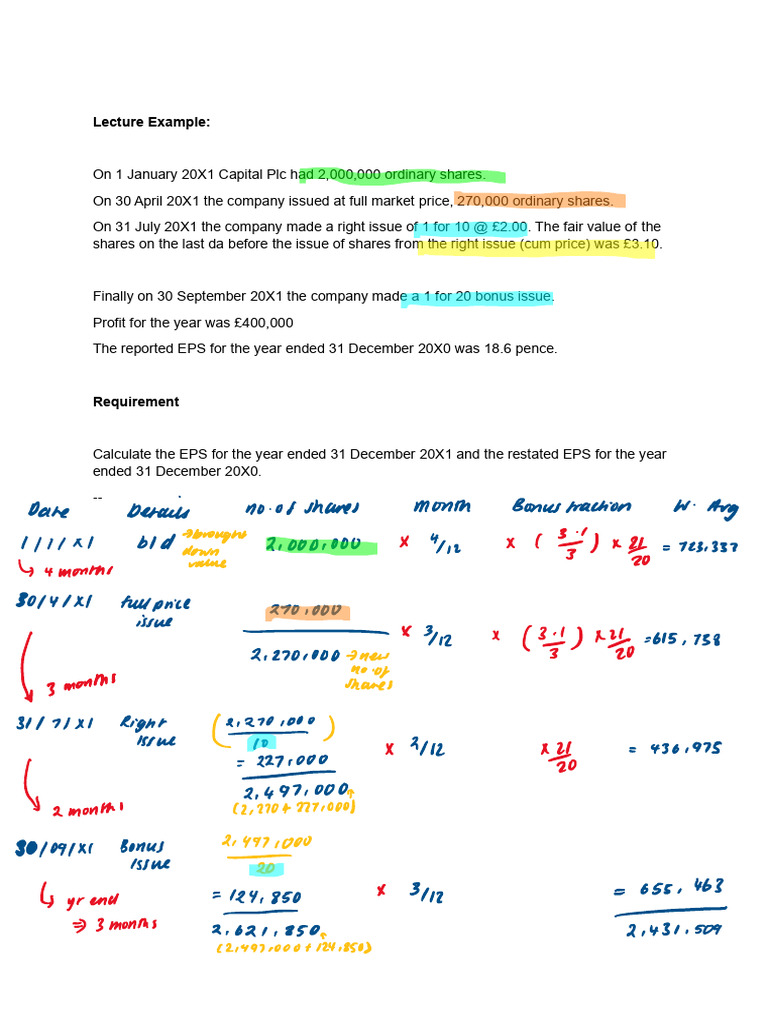 Lecture Example:
On 1 January 20X1 Capital Plc had 2,000,000 ordinary shares.
On 30 April 20X1 the company issued at full market price, 270,000 ordinary shares.
On 31 July 20X1 the company made a right issue of 1 for 10 @ £2.00. The fair value of the
shares on the last da before the issue of shares from the right issue (cum price) was £3.10.
Finally on 30 September 20X1 the company made a 1 for 20 bonus issue.
Profit for the year was £400,000
The reported EPS for the year ended 31 December 20X0 was 18.6 pence.
Requirement
Calculate the EPS for the year ended 31 December 20X1 and the restated EPS for the year
ended 31 December 20X0.
--
Date Details no. of shares month Bonus fraction W. Avg
1/1/X1 b/d → brought down value 2,000,000 x 4/12 x (3.1/3) x 21/20 = 723,337
↳ 4 months
30/4/X1 full price issue 270,000
x 3/12 x (3.1/3) x 21/20 = 615,738
2,270,000 → new no. of shares
3 months
31/7/X1 Right issue (2,270,000/10)
= 227,000 x 2/12 x 21/20 = 436,975
2,497,000
(2,270 + 227,000)
2 months
30/09/X1 Bonus issue 2,497,000/20
= 124,850 x 3/12 = 655,463
↳ yr end
⇒ 3 months
2,621,850 2,431,509
(2,497,000 + 124,850)